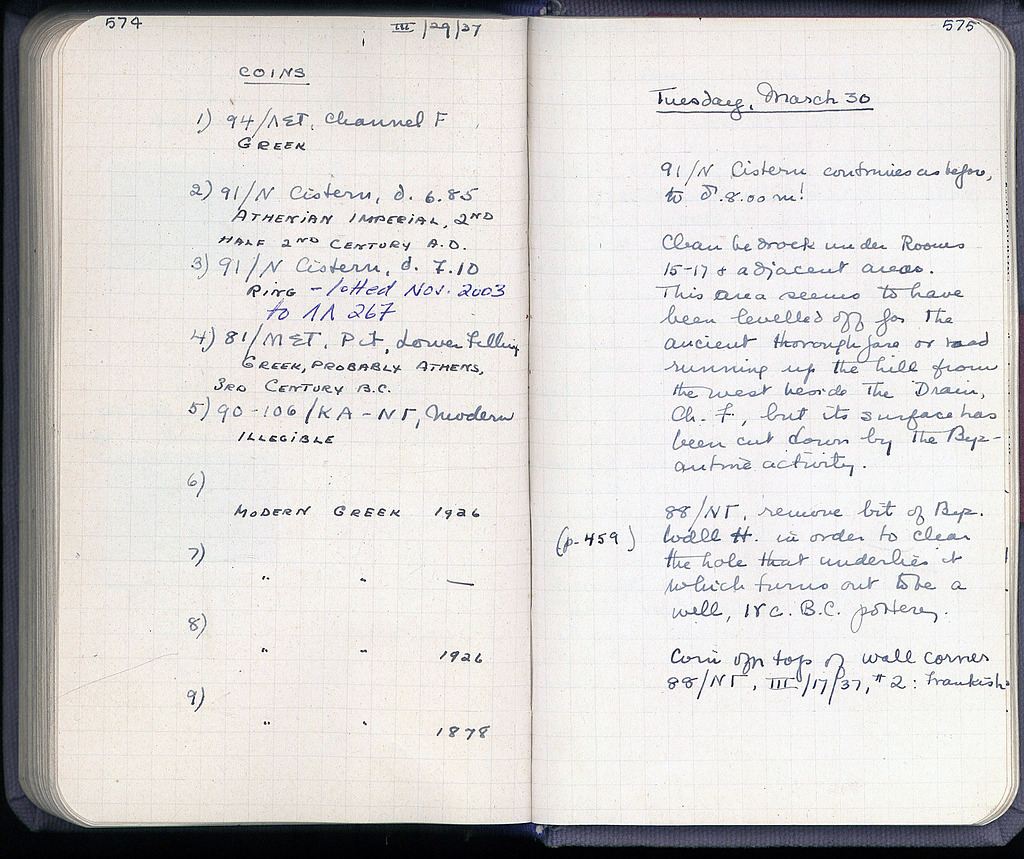 574
III/29/37
COINS
1) 94/ΛΣΤ, Channel F
GREEK
2) 91/N Cistern, d. 6.85
ATHENIAN IMPERIAL, 2ND
HALF 2ND CENTURY A.D.
3) 91/N Cistern, d. 7.10
RING - lotted Nov. 2003
to ΛΛ 267
4) 81/ΜΣΤ, Pit, Lower Filling
GREEK, PROBABLY ATHENS,
3RD CENTURY B.C.
5) 90-106/KA-NΓ, Modern
ILLEGIBLE
6)
MODERN GREEK 1926
7)
" " —
8)
" " 1926
9)
" " 1878
575
Tuesday, March 30
91/N Cistern continues as before,
to d. 8.00 m!
Clean bedrock under Rooms
15-17 & adjacent areas.
This area seems to have
been levelled off for the
ancient thoroughfare or road
running up the hill from
the west beside the Drain,
Ch. F, but its surface has
been cut down by the Byz-
antine activity.
88/NΓ, remove bit of Byz.
(p. 459) Wall H. in order to clear
the hole that underlies it
which turns out to be a
well, IV c. B.C. pottery.
Coin off top of wall corner
88/NΓ, III/17/37, #2: Frankish